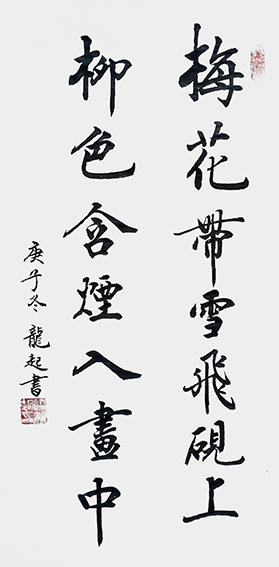 梅花帶雪飛硯上
柳色含煙入畫中
庚子冬龍起書